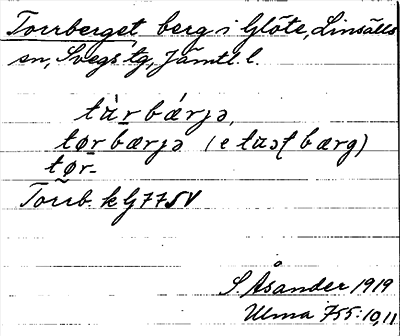 Torrberget berg i Glöte, Linsälls
sn, Svegs tg, Jämtl. l.
tùr bǽrjə,
tør bærjə (e tuəʈ bærg)
tør-
Torrb. k G 77 SV
S Åsander 1919
Ulma 755:1011